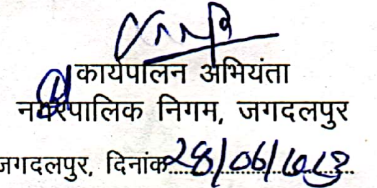 कार्यपालन अभियंता
नगरपालिक निगम, जगदलपुर
जगदलपुर, दिनांक 28/06/